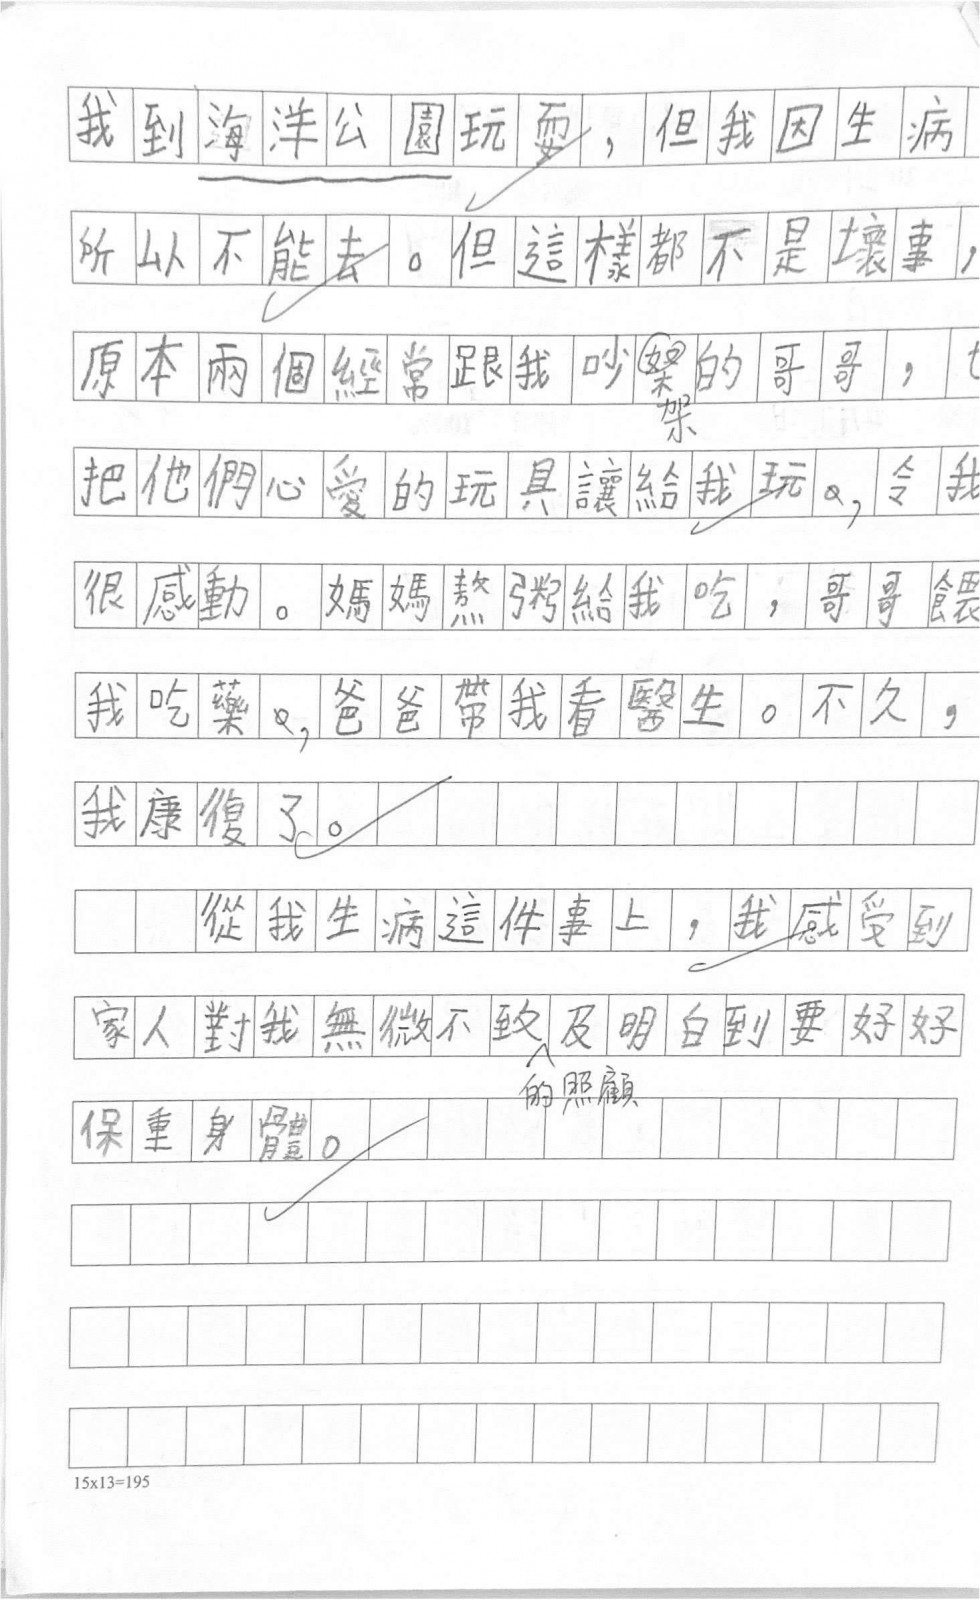 我到海洋公園玩耍，但我因生病
所以不能去。但這樣都不是壞事，
原本兩個經常跟我吵的哥哥，
架
把他們心愛的玩具讓給我玩。，令我
很感動。媽媽熬粥給我吃，哥哥餵
我吃藥。，爸爸帶我看醫生。不久，
我康復了。
從我生病這件事上，我感受到
家人對我無微不致及明白到要好好
的照顧
保重身體。
15x13=195